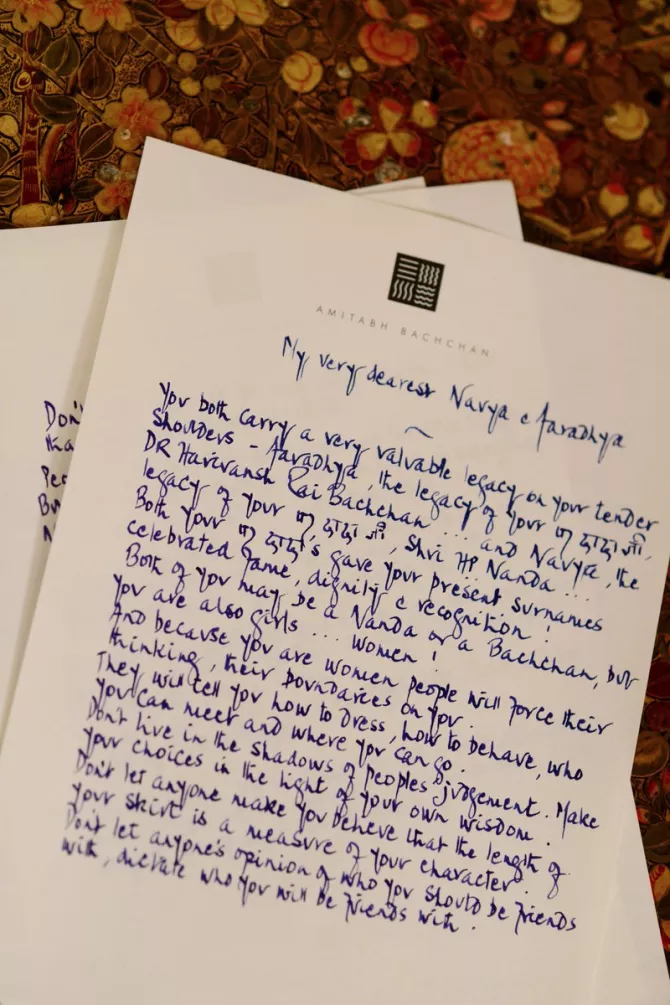 AMITABH BACHCHAN
My very dearest Navya & Aaradhya
you both carry a very valuable legacy on your tender
shoulders - Aaradhya, the legacy of your पर दादा जी,
DR Harivansh Rai Bachchan ... and Navya, the
legacy of your पर दादा जी, Shri HP Nanda ...
Both your पर दादा's gave your present surnames
celebrated fame, dignity & recognition !
Both of you may be a Nanda or a Bachchan, but
you are also girls ... women !
And because you are women people will force their
thinking, their boundaries on you.
They will tell you how to dress, how to behave, who
you can meet and where you can go.
Don't live in the shadows of peoples judgement. Make
your choices in the light of your own wisdom.
Don't let anyone make you believe that the length of
your skirt is a measure of your character.
Don't let anyone's opinion of who you should be friends
with, dictate who you will be friends with.
Don't